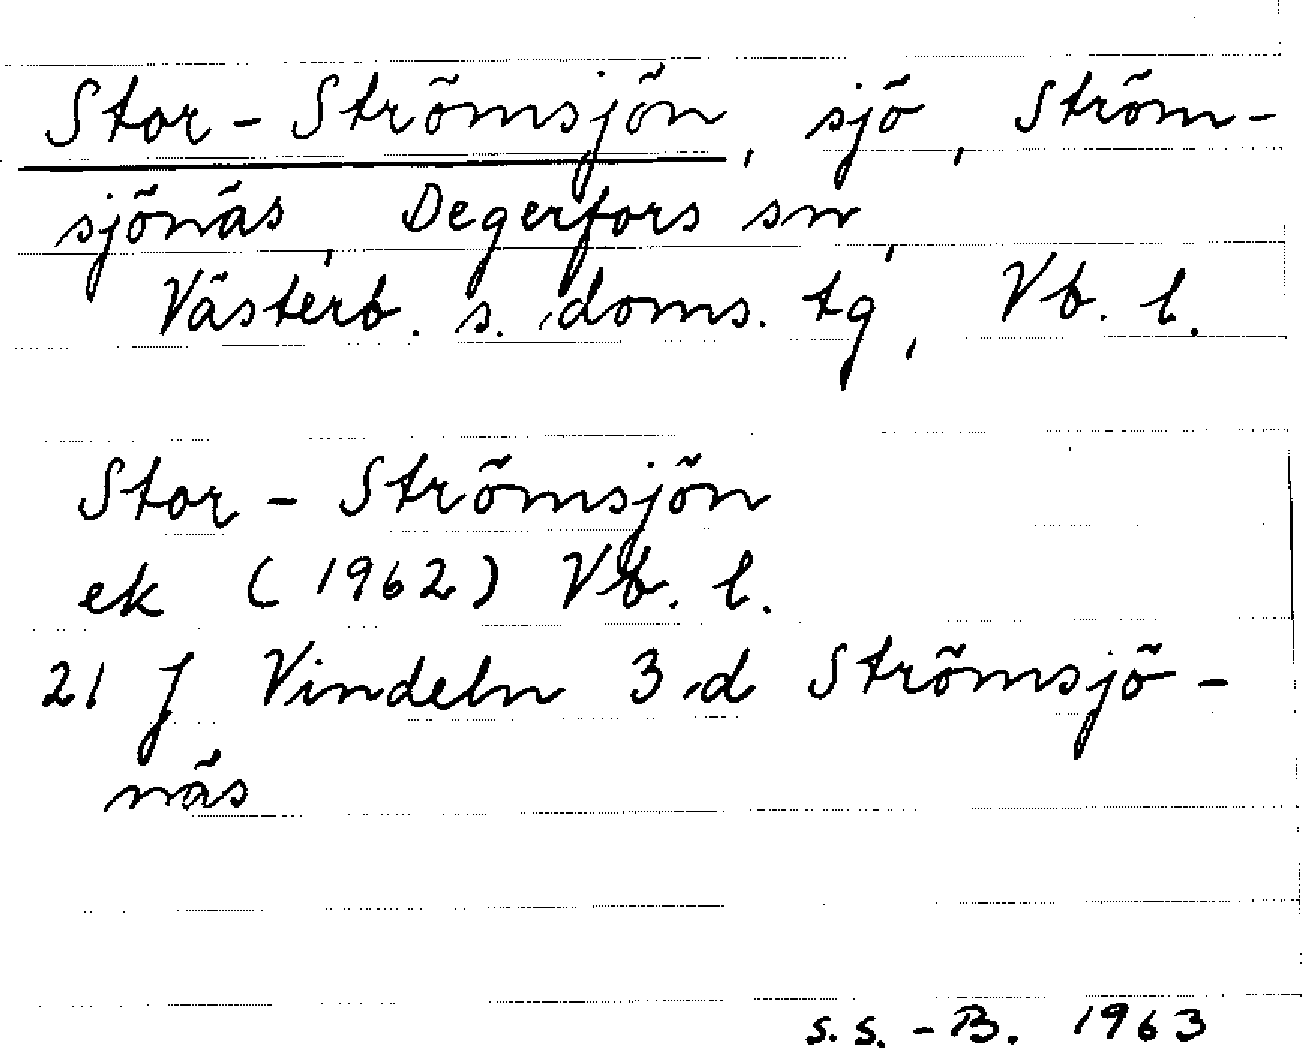 Stor-Strömsjön, sjö, Ström-
sjönäs, Degerfors sn,
Västerb. s. doms. tg, Vb. l.
Stor-Strömsjön
ek (1962) Vb. l.
21 J Vindeln 3 d Strömsjö-
näs
s.s.-B. 1963